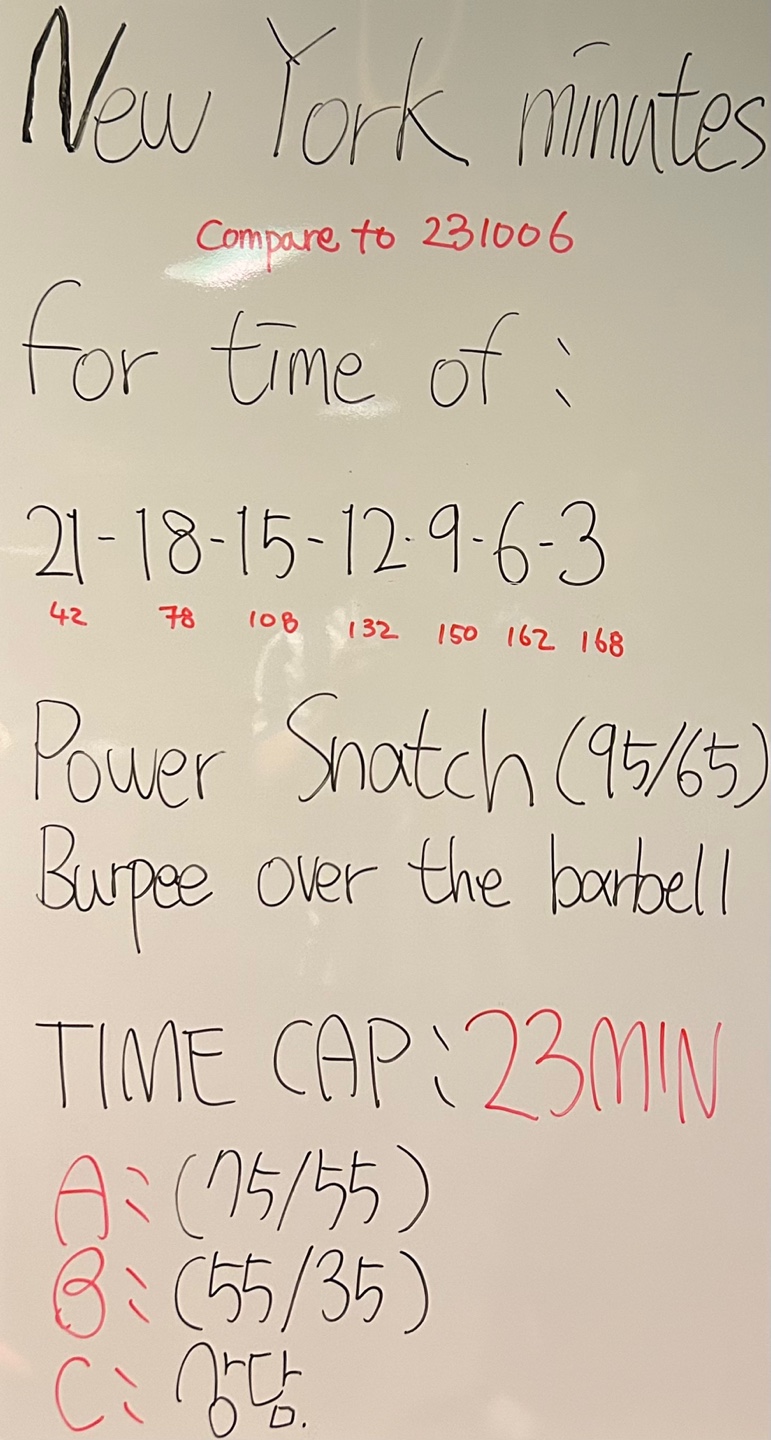 New York minutes
Compare to 231006
for time of :
21-18-15-12-9-6-3
42 78 108 132 150 162 168
Power Snatch (95/65)
Burpee over the barbell
TIME CAP : 23MIN
A : (75/55)
B : (55/35)
C : 상담.